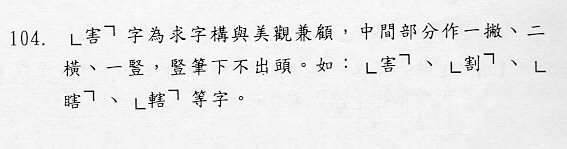 104. ㄴ害ㄱ字為求字構與美觀兼顧，中間部分作一撇、二
橫、一豎，豎筆下不出頭。如：ㄴ害ㄱ、ㄴ割ㄱ、ㄴ
瞎ㄱ、ㄴ轄ㄱ等字。